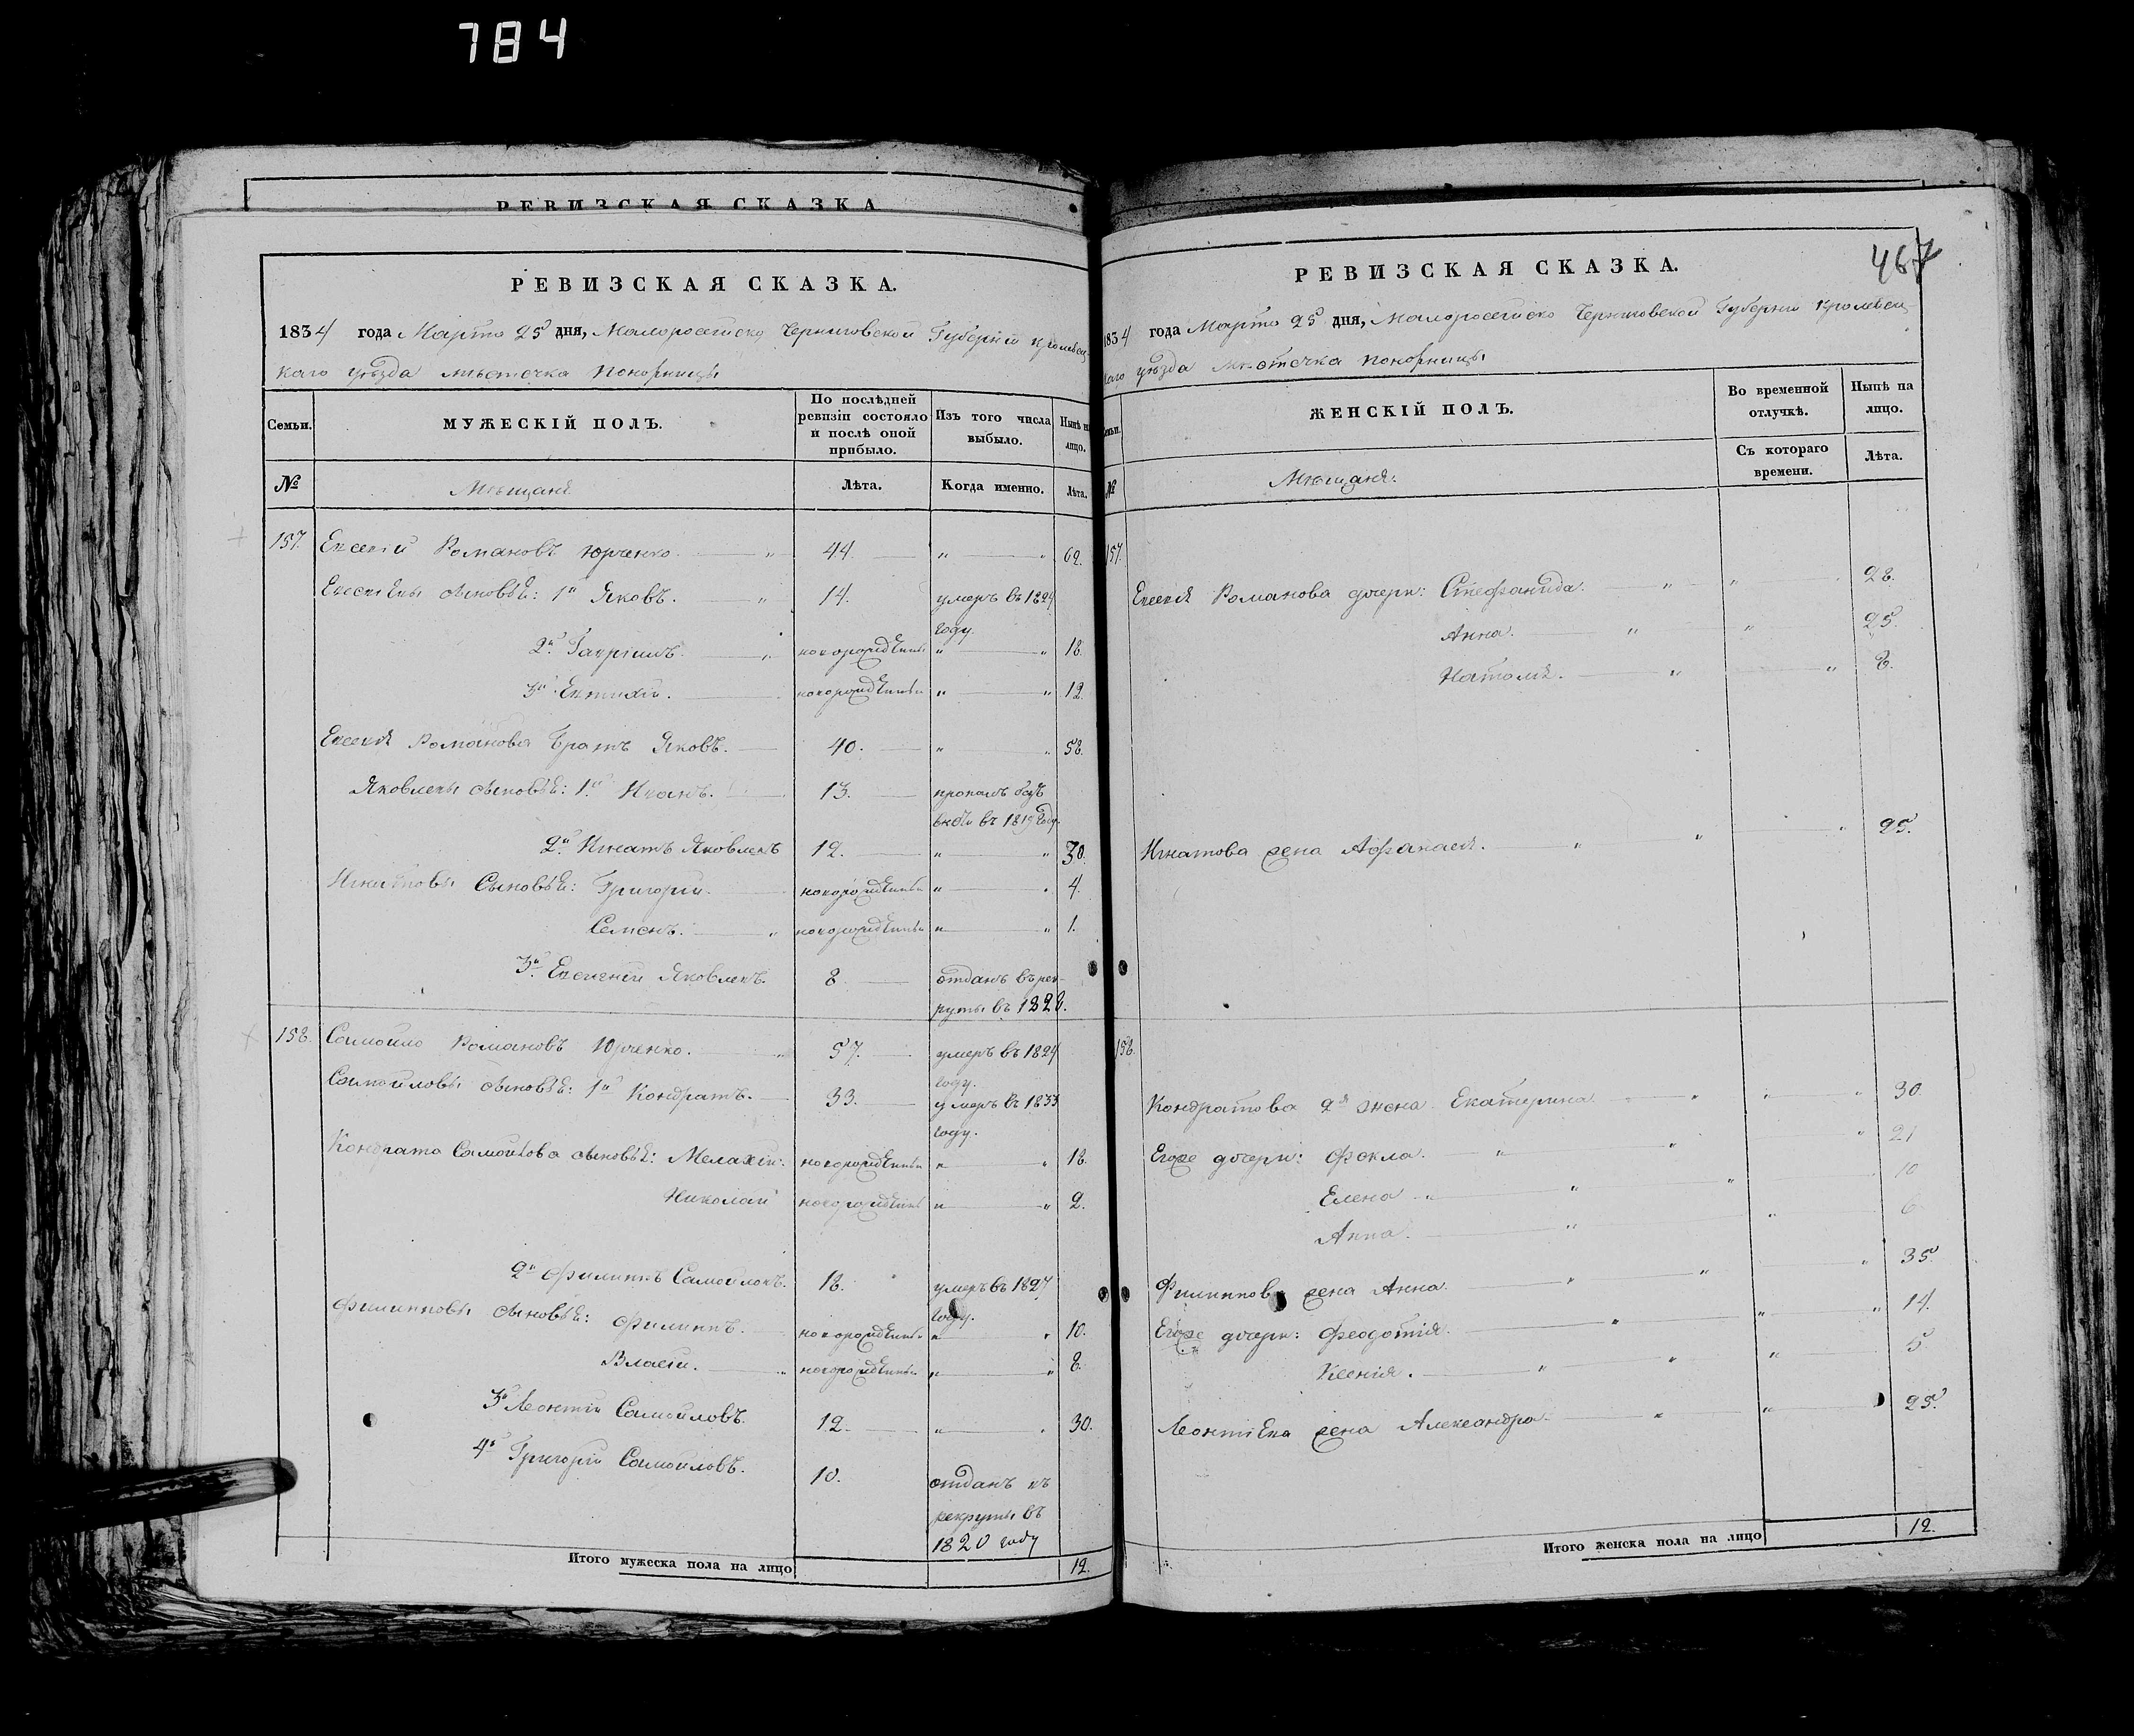 784
РЕВИЗСКАЯ СКАЗКА
РЕВИЗСКАЯ СКАЗКА.
1834 года Марта 25 дня, Малоросейско Черниговской Губерніи Кролевец-
каго уѣзда мѣстечка Понорницы
Семьи. МУЖЕСКІЙ ПОЛЪ. По послѣдней ревизіи состояло и послѣ оной прибыло. Изъ того числа выбыло. Нынѣ на лицо.
№ Мѣщаня Лѣта. Когда именно. Лѣта.
157. Романовъ Юрченко. 44. 62.
сыновья: 1й Яковъ. 14. умеръ въ 1824 году.
2й Гавріилъ. новорожденны 18.
3й новорожденны 12.
Романова Братъ Яковъ. 40. 58.
Яковлевы сыновья: 1й Иванъ. 13. пропалъ безъ въ 1819 году.
2й Игнатъ Яковлевъ 12. 30.
Игнатовы Сыновья: Григорій. новорожденны 4.
Семенъ. новорожденны 1.
3й Яковлевъ. 8 отданъ въ рек-
руты въ 1828.
158. Самойло Романовъ Юрченко. 57. умеръ въ 1824 году.
Самойловы сыновья: 1й Кондратъ. 33. умеръ въ 1833 году.
Кондрата Самойлова сыновья: Мелахій. новорожденны 18.
Николай новорожденны 2.
2й Филиппъ Самойловъ. 18. умеръ въ 1827 году.
Филипповы сыновья: Филиппъ. новорожденны 10.
Власій. новорожденны 8.
3й Леонтій Самойловъ. 12. 30.
4й Григорій Самойловъ. 10. отданъ въ
рекруты въ
1820 году
Итого мужеска пола на лицо 12.
467
РЕВИЗСКАЯ СКАЗКА.
1834 года Марта 25 дня, Малоросейско Черниговской Губерніи Кролевец
каго уѣзда мѣстечка Понорницы
Семьи. ЖЕНСКІЙ ПОЛЪ. Во временной отлучкѣ. Нынѣ на лицо.
№ Мѣщаня. Съ котораго времени. Лѣта.
157.
Романова дочери: Стефанида. 28.
Анна. 25.
Наталя. 8.
Игнатова жена Афанасія. 25.
158.
Кондратова 2я жена Екатерина 30.
Егоже дочери: Фекла. 21
Елена 10
Анна. 6
Филиппова жена Анна. 35
Егоже дочери: Феодотія. 14.
Ксенія. 5
Леонтіева жена Александра. 25.
Итого женска пола на лицо 12.